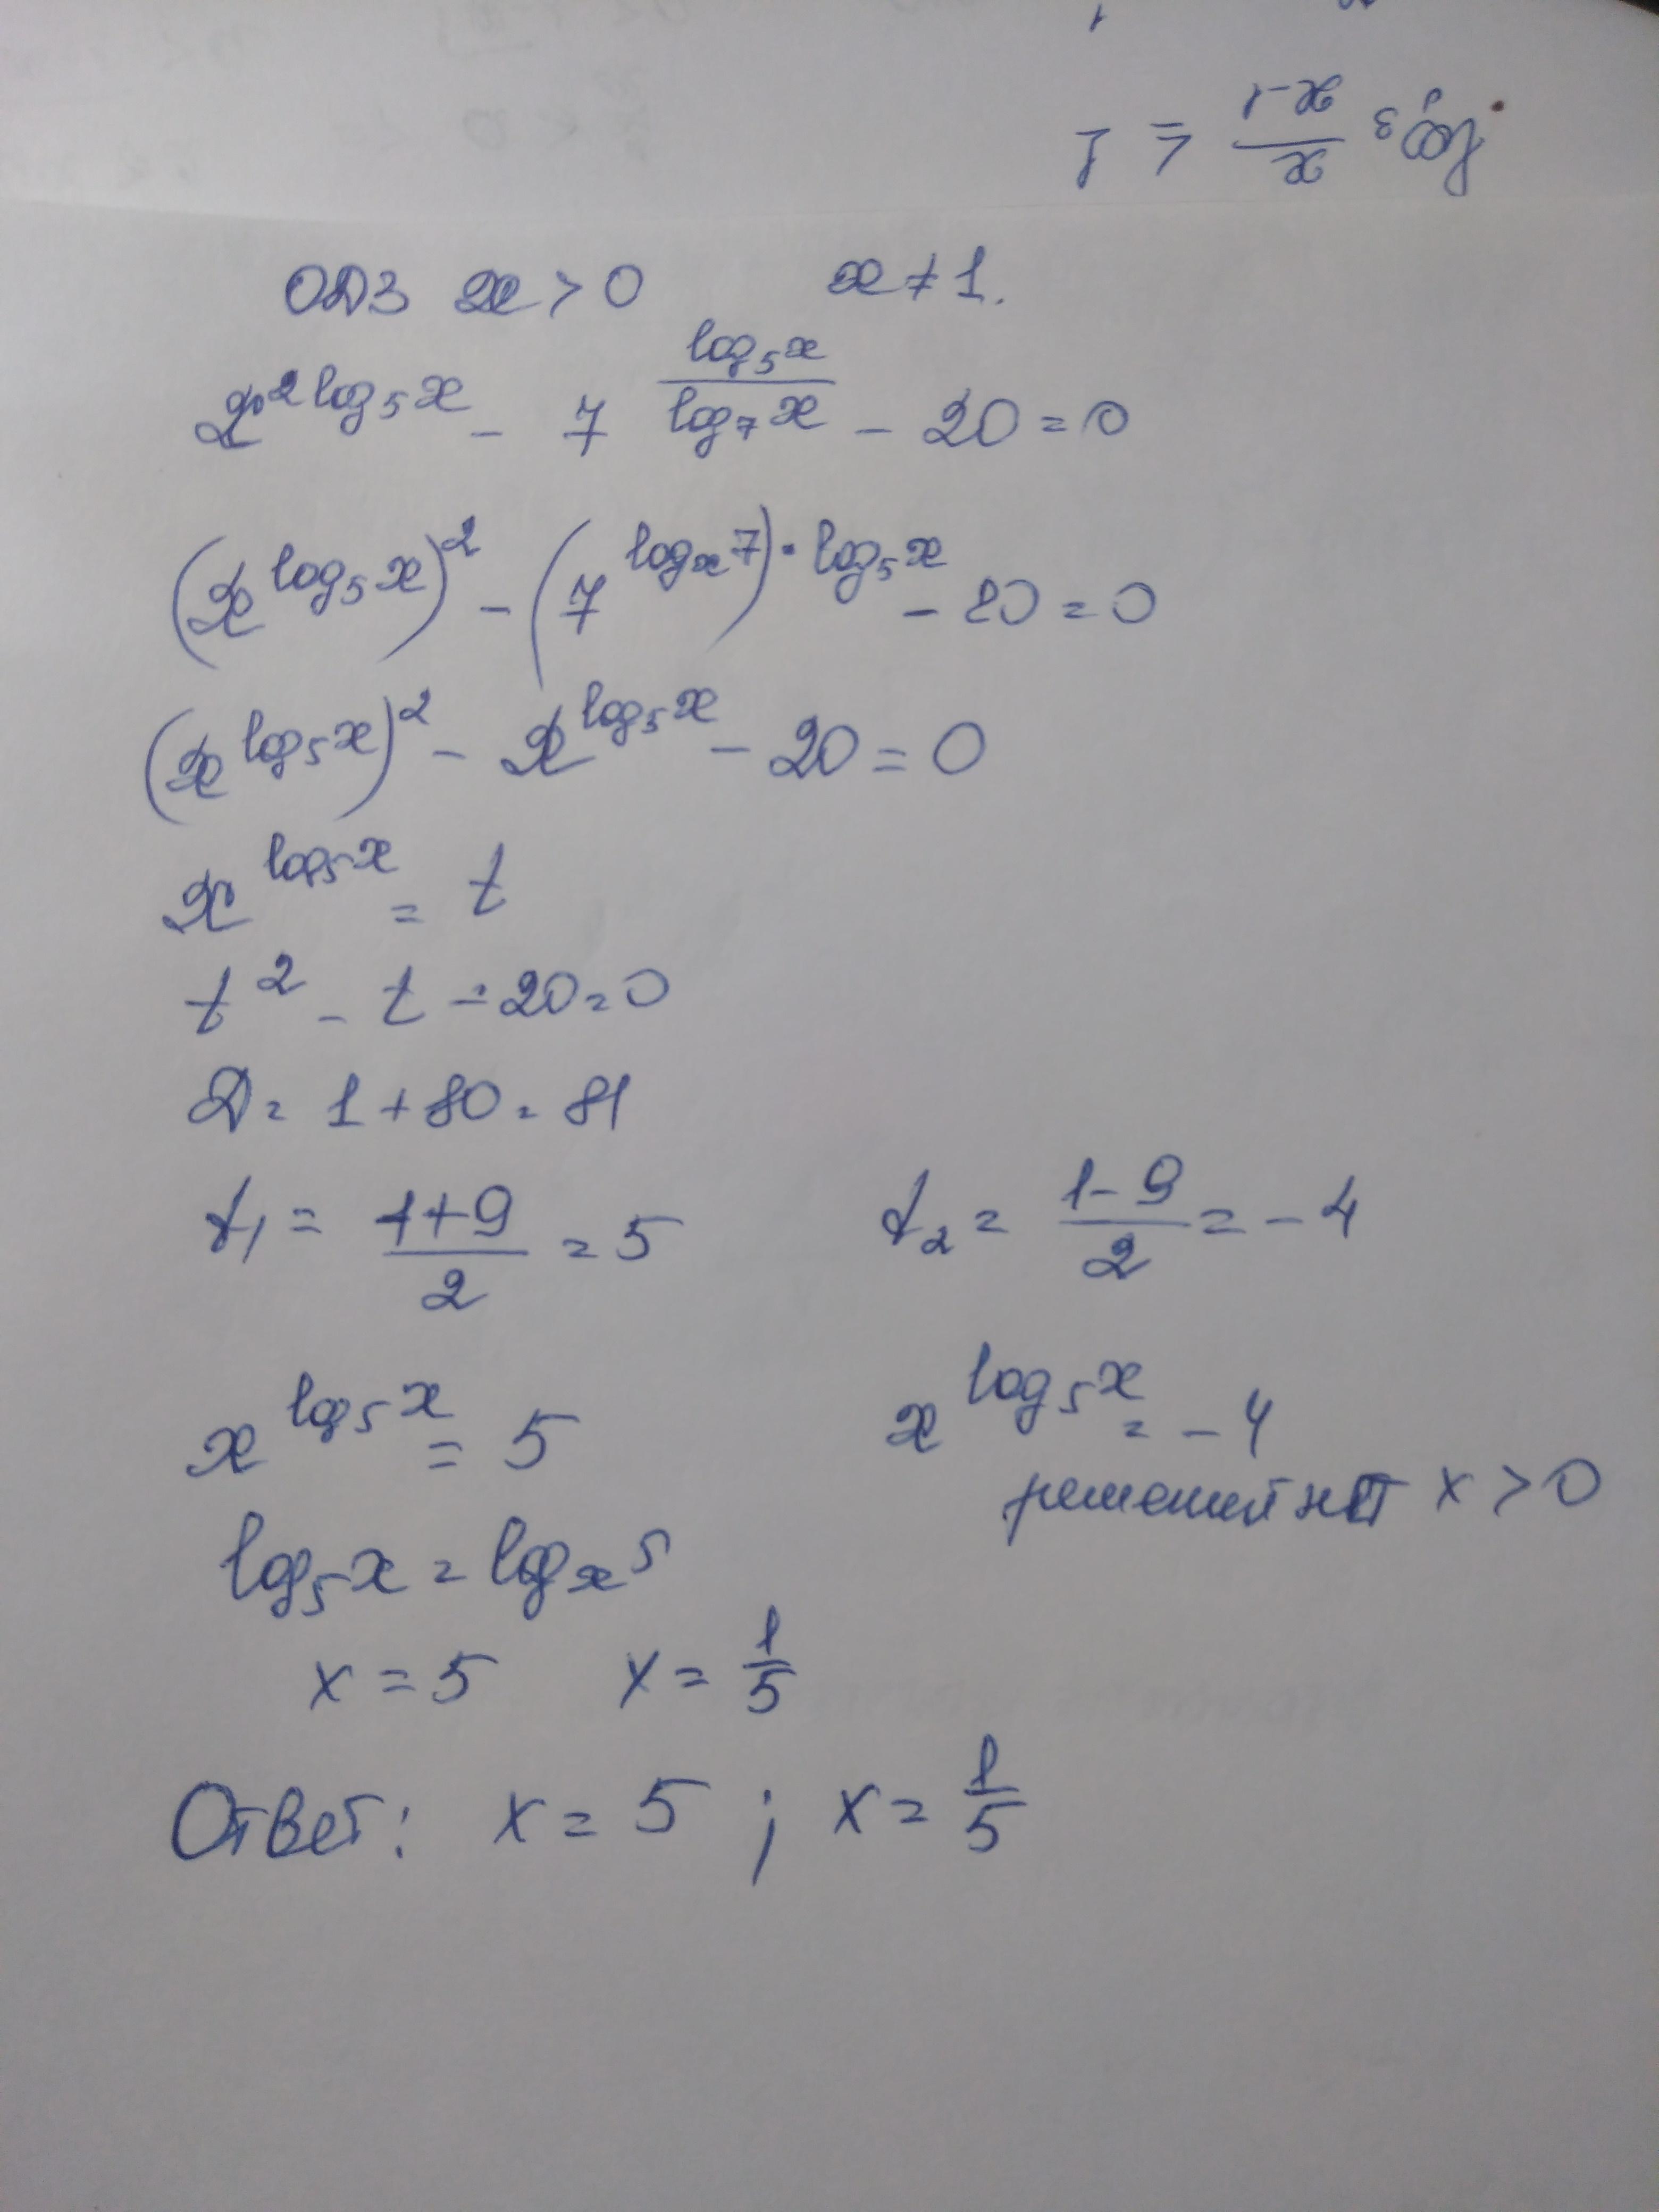 log₃ x/(x-1) ≤ 1
ОДЗ x > 0 x ≠ 1.
x^(2 log₅ x) - 7^(log₅ x / log₇ x) - 20 = 0
(x^(log₅ x))² - (7^(logₓ 7)) · log₅ x - 20 = 0
(x^(log₅ x))² - x^(log₅ x) - 20 = 0
x^(log₅ x) = t
t² - t - 20 = 0
D = 1 + 80 = 81
t₁ = (1+9)/2 = 5 t₂ = (1-9)/2 = -4
x^(log₅ x) = 5 x^(log₅ x) = -4
решений нет x > 0
log₅ x = logₓ 5
x = 5 x = 1/5
Ответ: x = 5 ; x = 1/5